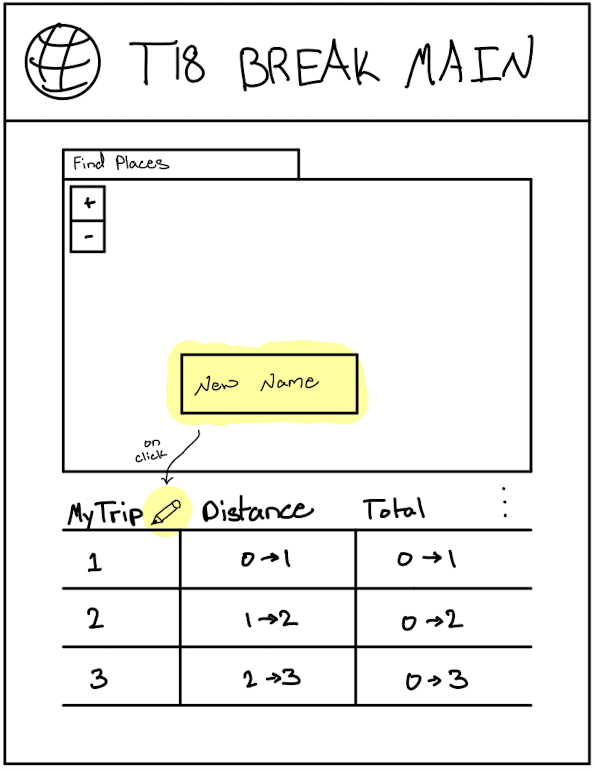 T18 BREAK MAIN
Find Places
+
-
New Name
on
click
MyTrip Distance Total ⋮
1 0→1 0→1
2 1→2 0→2
3 2→3 0→3